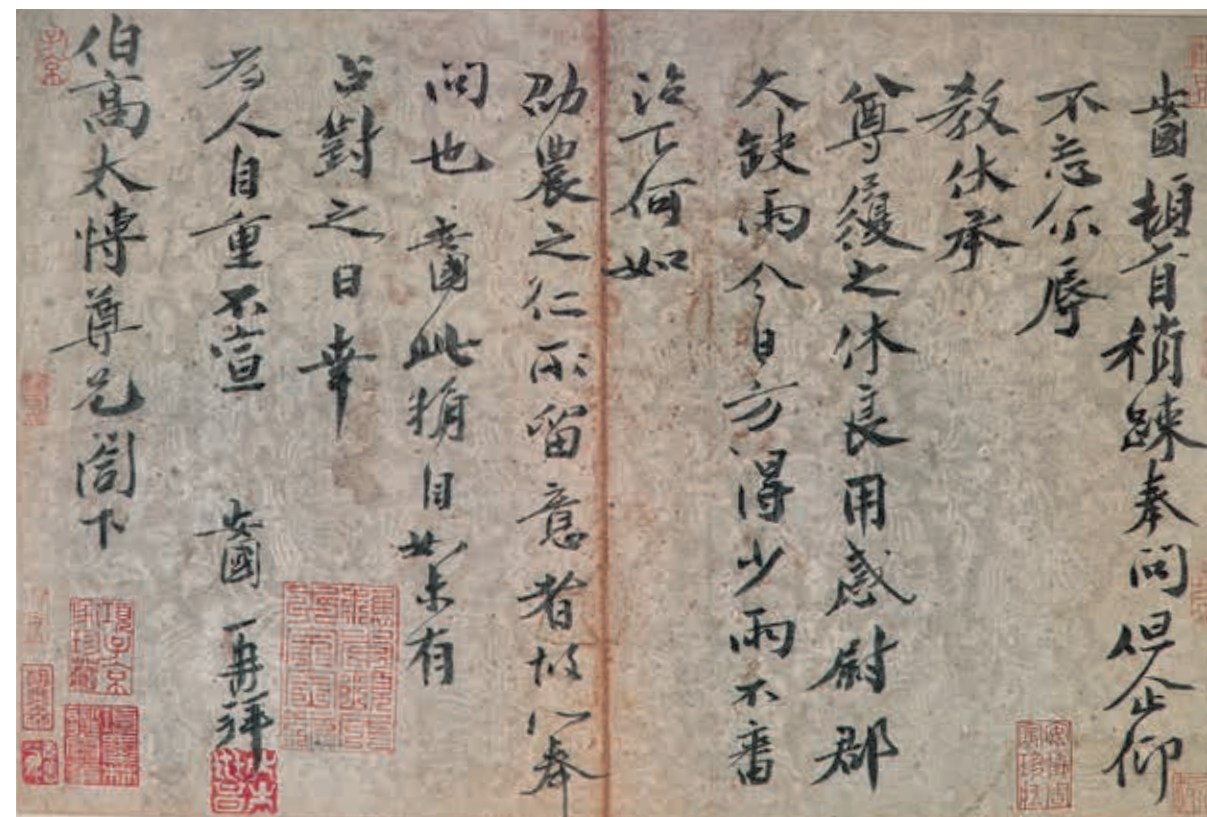 頓首稍踈奉問但企仰
不忘辱
教伏承
尊履之休良用感尉郡
大缺雨今日方得少雨不審
治下何如
劭農之仁所留意者故以奉
問也 此粗自如未有
占對之日幸
為人自重不宣 再拜
伯高太博尊兄閤下